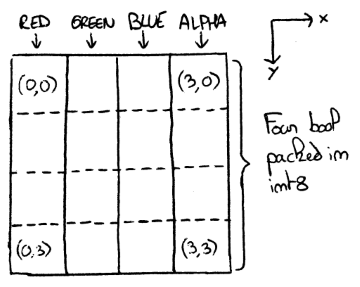 RED GREEN BLUE ALPHA
x
y
(0,0) (3,0)
Four bool
packed in
int8
(0,3) (3,3)